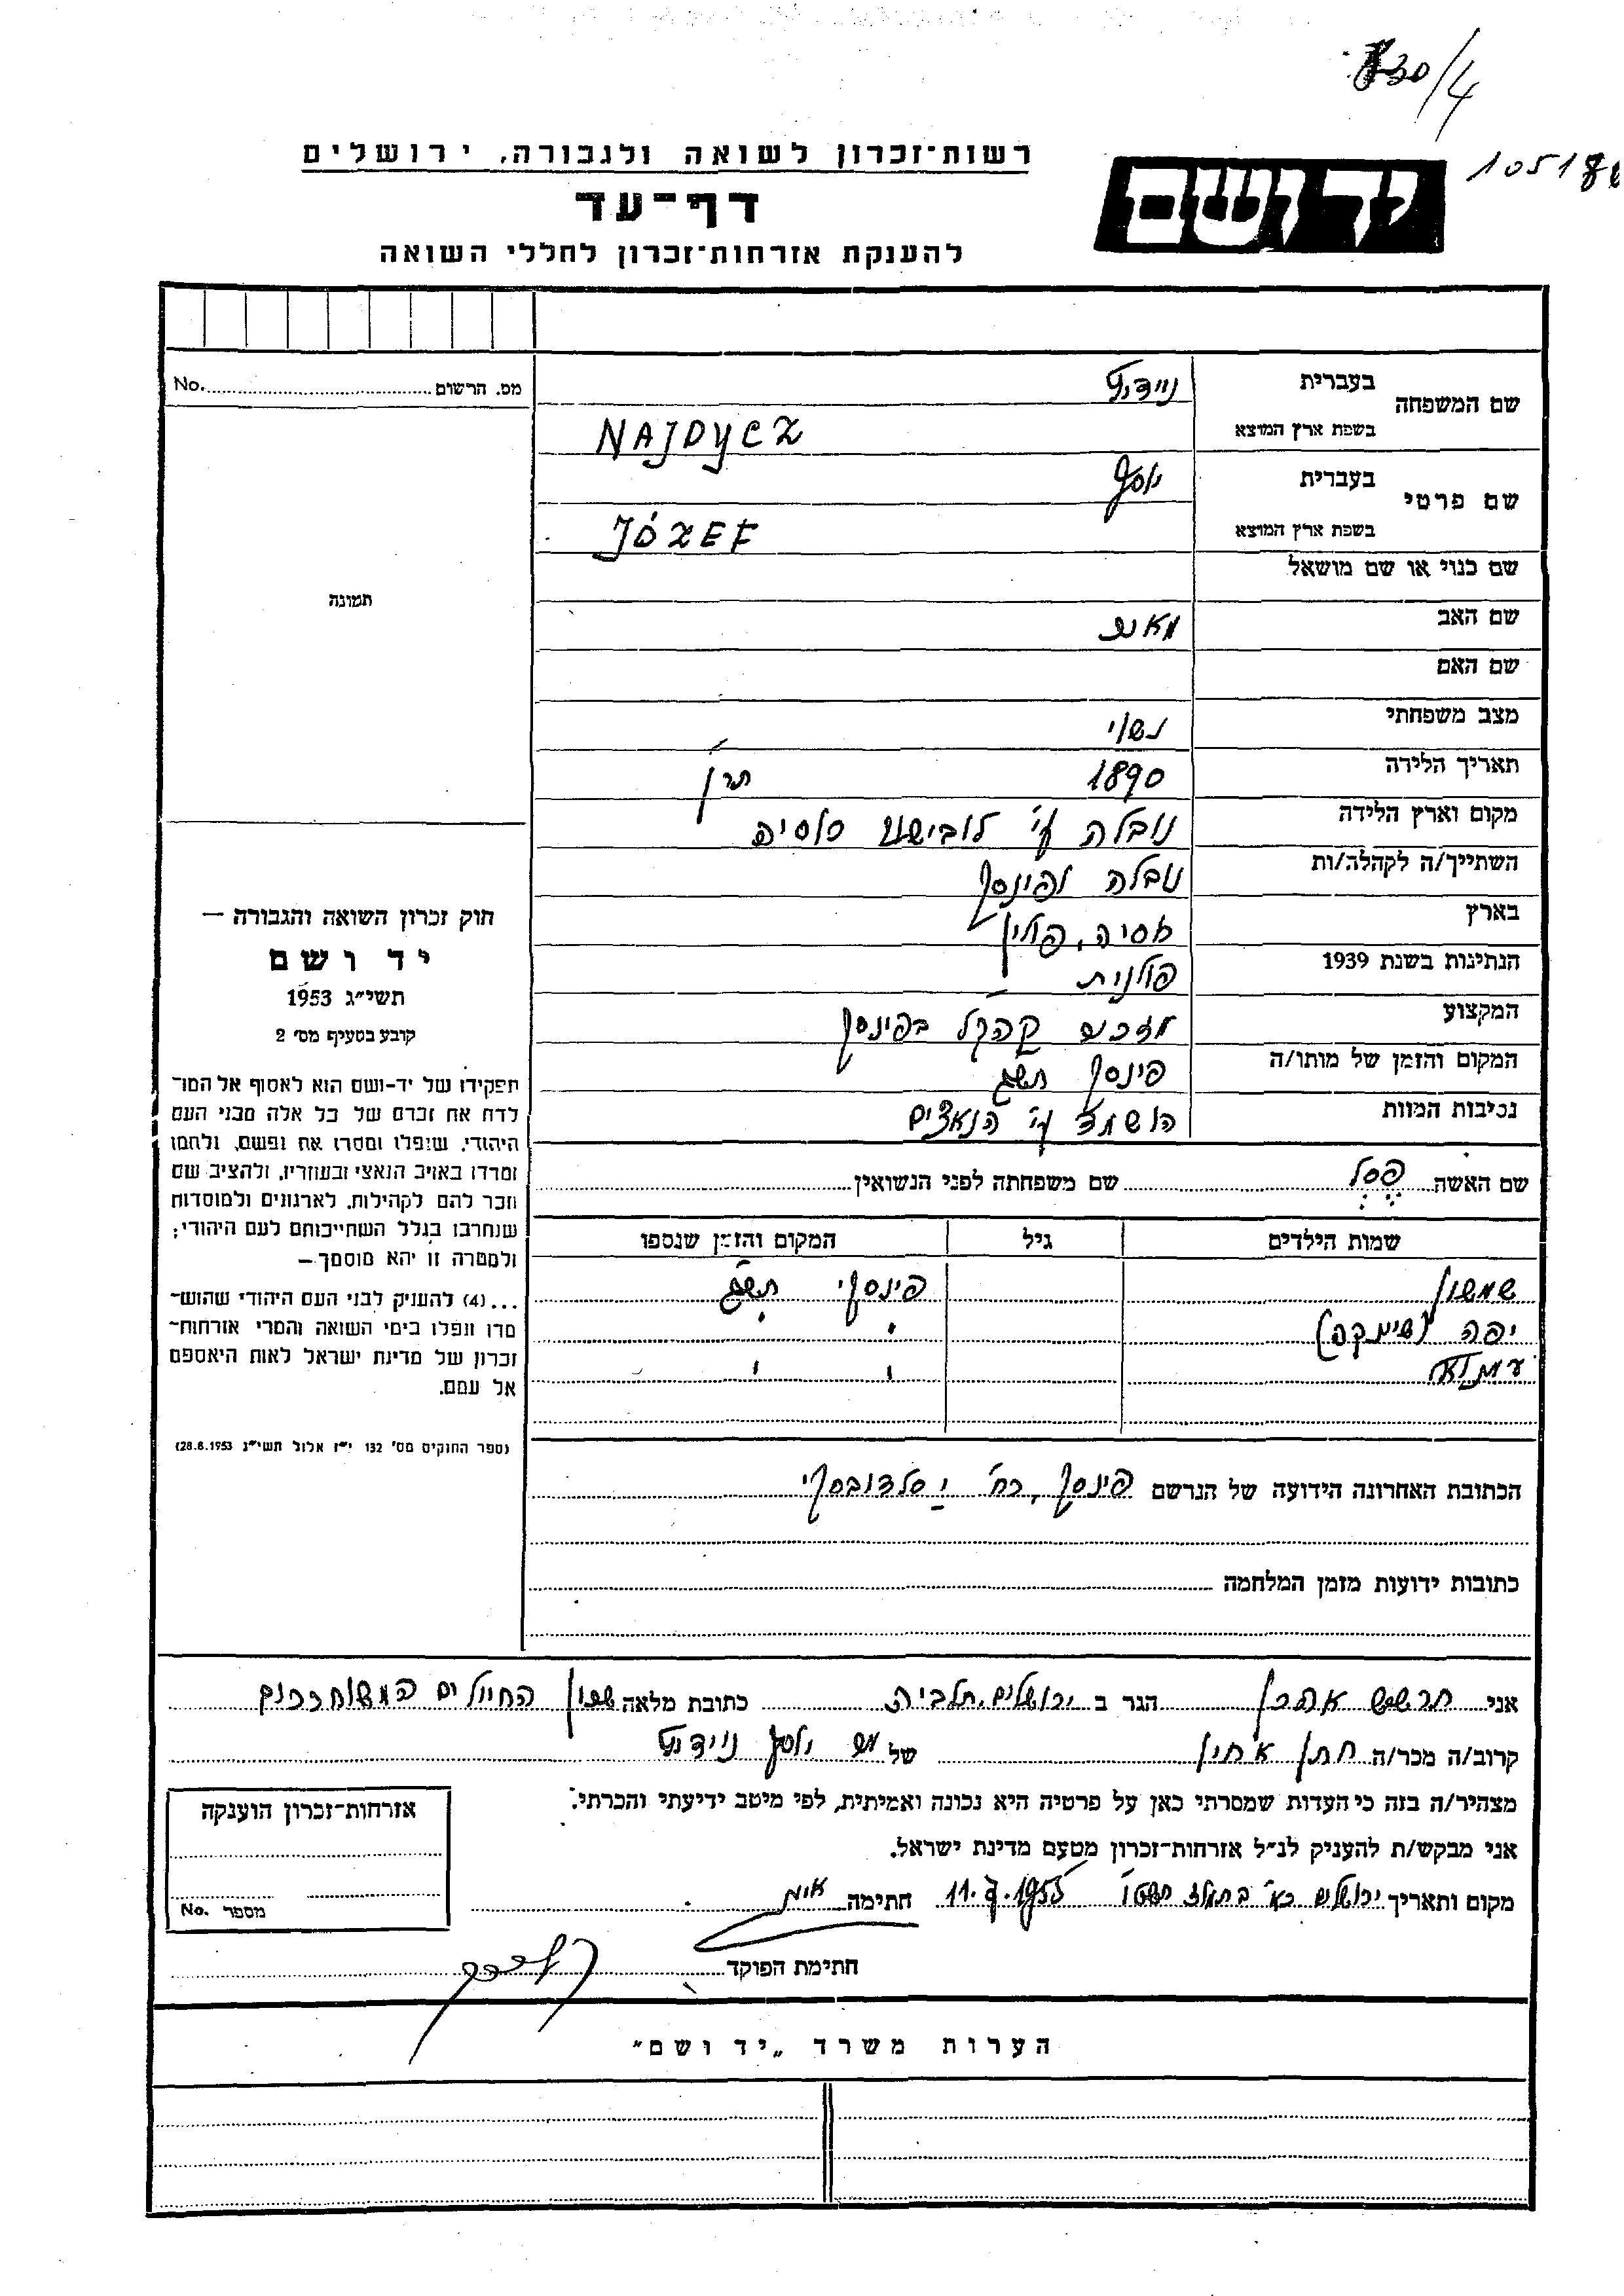 730/4
105184
רשות־זכרון לשואה ולגבורה, ירושלים
יד ושם
דף־עד
להענקת אזרחות־זכרון לחללי השואה
מס. הרשום No.
שם המשפחה
בעברית ניידיץ
בשפת ארץ המוצא NAJDYCZ
שם פרטי
בעברית יוסף
בשפת ארץ המוצא JÓZEF
תמונה
שם כנוי או שם מושאל
שם האב
שם האם
מצב משפחתי נשוי
תאריך הלידה 1890 תר"ן
מקום וארץ הלידה נובלה ע"י לובישוב רוסיה
השתייך/ה לקהלה/ות נובלה ופינסק
בארץ רוסיה, פולין
הנתינות בשנת 1939 פולנית
המקצוע מזכיר קהקל בפינסק
המקום והזמן של מותו/ה פינסק תש"ג
נסיבות המוות הושמד ע"י הנאצים
שם האשה פסל שם משפחתה לפני הנשואין
שמות הילדים גיל המקום והזמן שנספו
שמשון פינסק תש"ג
יפה (שיינקה) " "
" "
חוק זכרון השואה והגבורה —
יד ושם
תשי״ג 1953
קובע בסעיף מס׳ 2
תפקידו של יד-ושם הוא לאסוף אל המו־
לדת את זכרם של כל אלה מבני העם
היהודי, שנפלו ומסרו את נפשם, ולחמו
ומרדו באויב הנאצי ובעוזריו, ולהציב שם
וזכר להם לקהילות, לארגונים ולמוסדות
שנחרבו בגלל השתייכותם לעם היהודי;
ולמטרה זו יהא מוסמך —
...(4) להעניק לבני העם היהודי שהוש־
מדו ונפלו בימי השואה והמרי אזרחות־
זכרון של מדינת ישראל לאות היאספם
אל עמם.
(ספר החוקים מס׳ 132 י״ז אלול תשי״ג 28.8.1953)
הכתובת האחרונה הידועה של הנרשם פינסק, רח'
כתובות ידועות מזמן המלחמה
אני חרשש אהרן הגר ב ירושלים, תלביה כתובת מלאה שכון החיילים המשוחררים
קרוב/ה מכר/ה חתן אחיו של מר יוסף ניידיץ
מצהיר/ה בזה כי העדות שמסרתי כאן על פרטיה היא נכונה ואמיתית, לפי מיטב ידיעתי והכרתי.
אני מבקש/ת להעניק לנ״ל אזרחות־זכרון מטעם מדינת ישראל.
מקום ותאריך ירושלים כ"א בתמוז תשט"ו 11.7.1955 חתימה
חתימת הפוקד
אזרחות־זכרון הוענקה
מספר No.
הערות משרד „יד ושם״